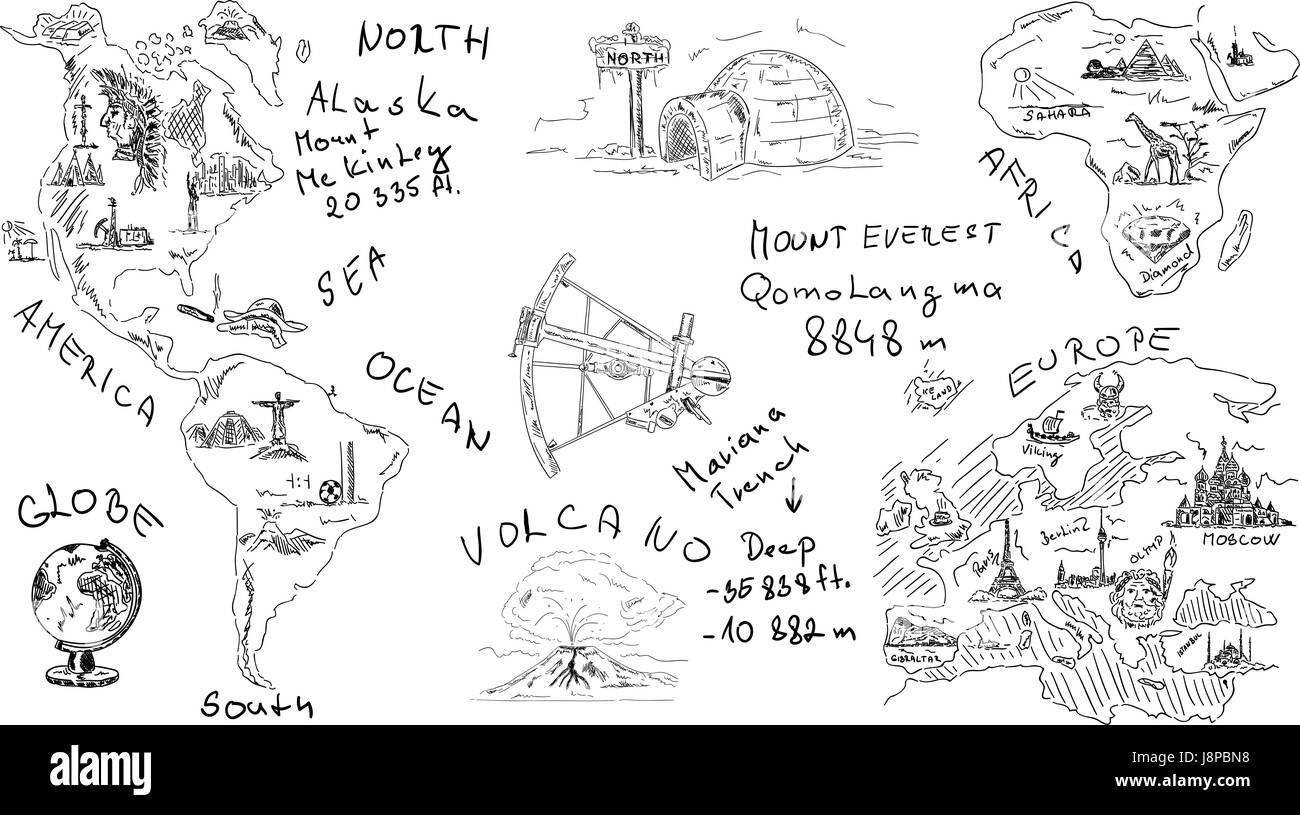 NORTH
Alaska
Mount
Mc Kinley
20 335 ft.
SEA
OCEAN
AMERICA
South
GLOBE
NORTH
MOUNT EVEREST
Qomolangma
8848 m
Mariana
Trench
Deep
-35 838 ft.
-10 882 m
VOLCANO
AFRICA
SAHARA
Diamond
EUROPE
ICE
LAND
Viking
Paris
Berlin
OLYMP
MOSCOW
GIBRALTAR
ISTANBUL
1:1
alamy
Image ID: J8PBN8
www.alamy.com